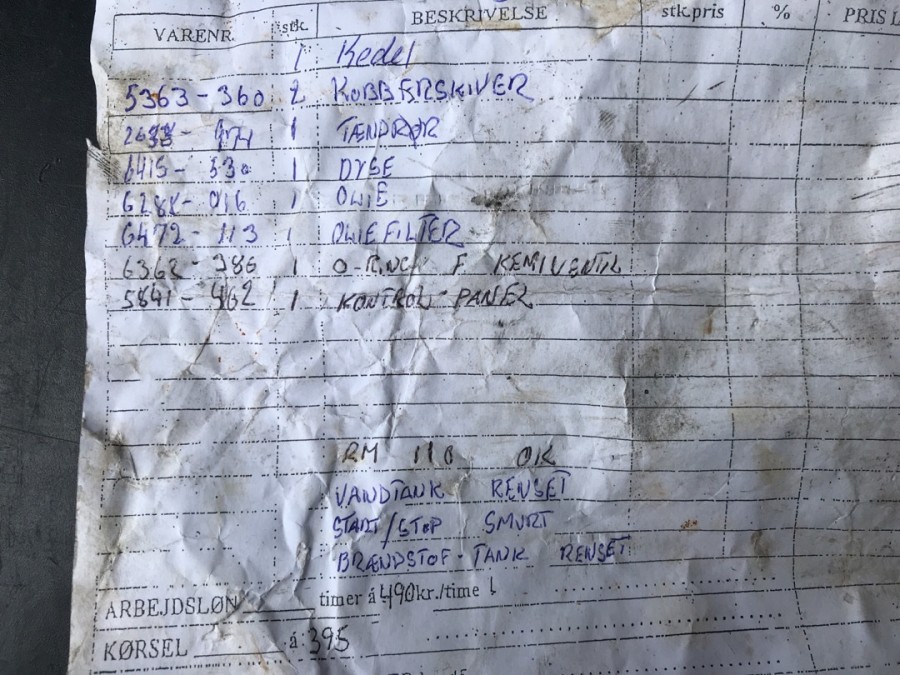 VARENR. stk. BESKRIVELSE stk.pris % PRIS I
1 Kedel
5363-360 2 KOBBERSKIVER
1 TÆNDRØR
6415-530 1 DYSE
1 OLIE
6472-113 1 OLIEFILTER
6362-386 1 O-RING F KEMIVENTIL
5841-462 1 KONTROL-PANEL
RM 110 OK
VANDTANK RENSET
START/STOP SMURT
BRÆNDSTOF-TANK RENSET
ARBEJDSLØN timer á 490 kr./time
KØRSEL á 395